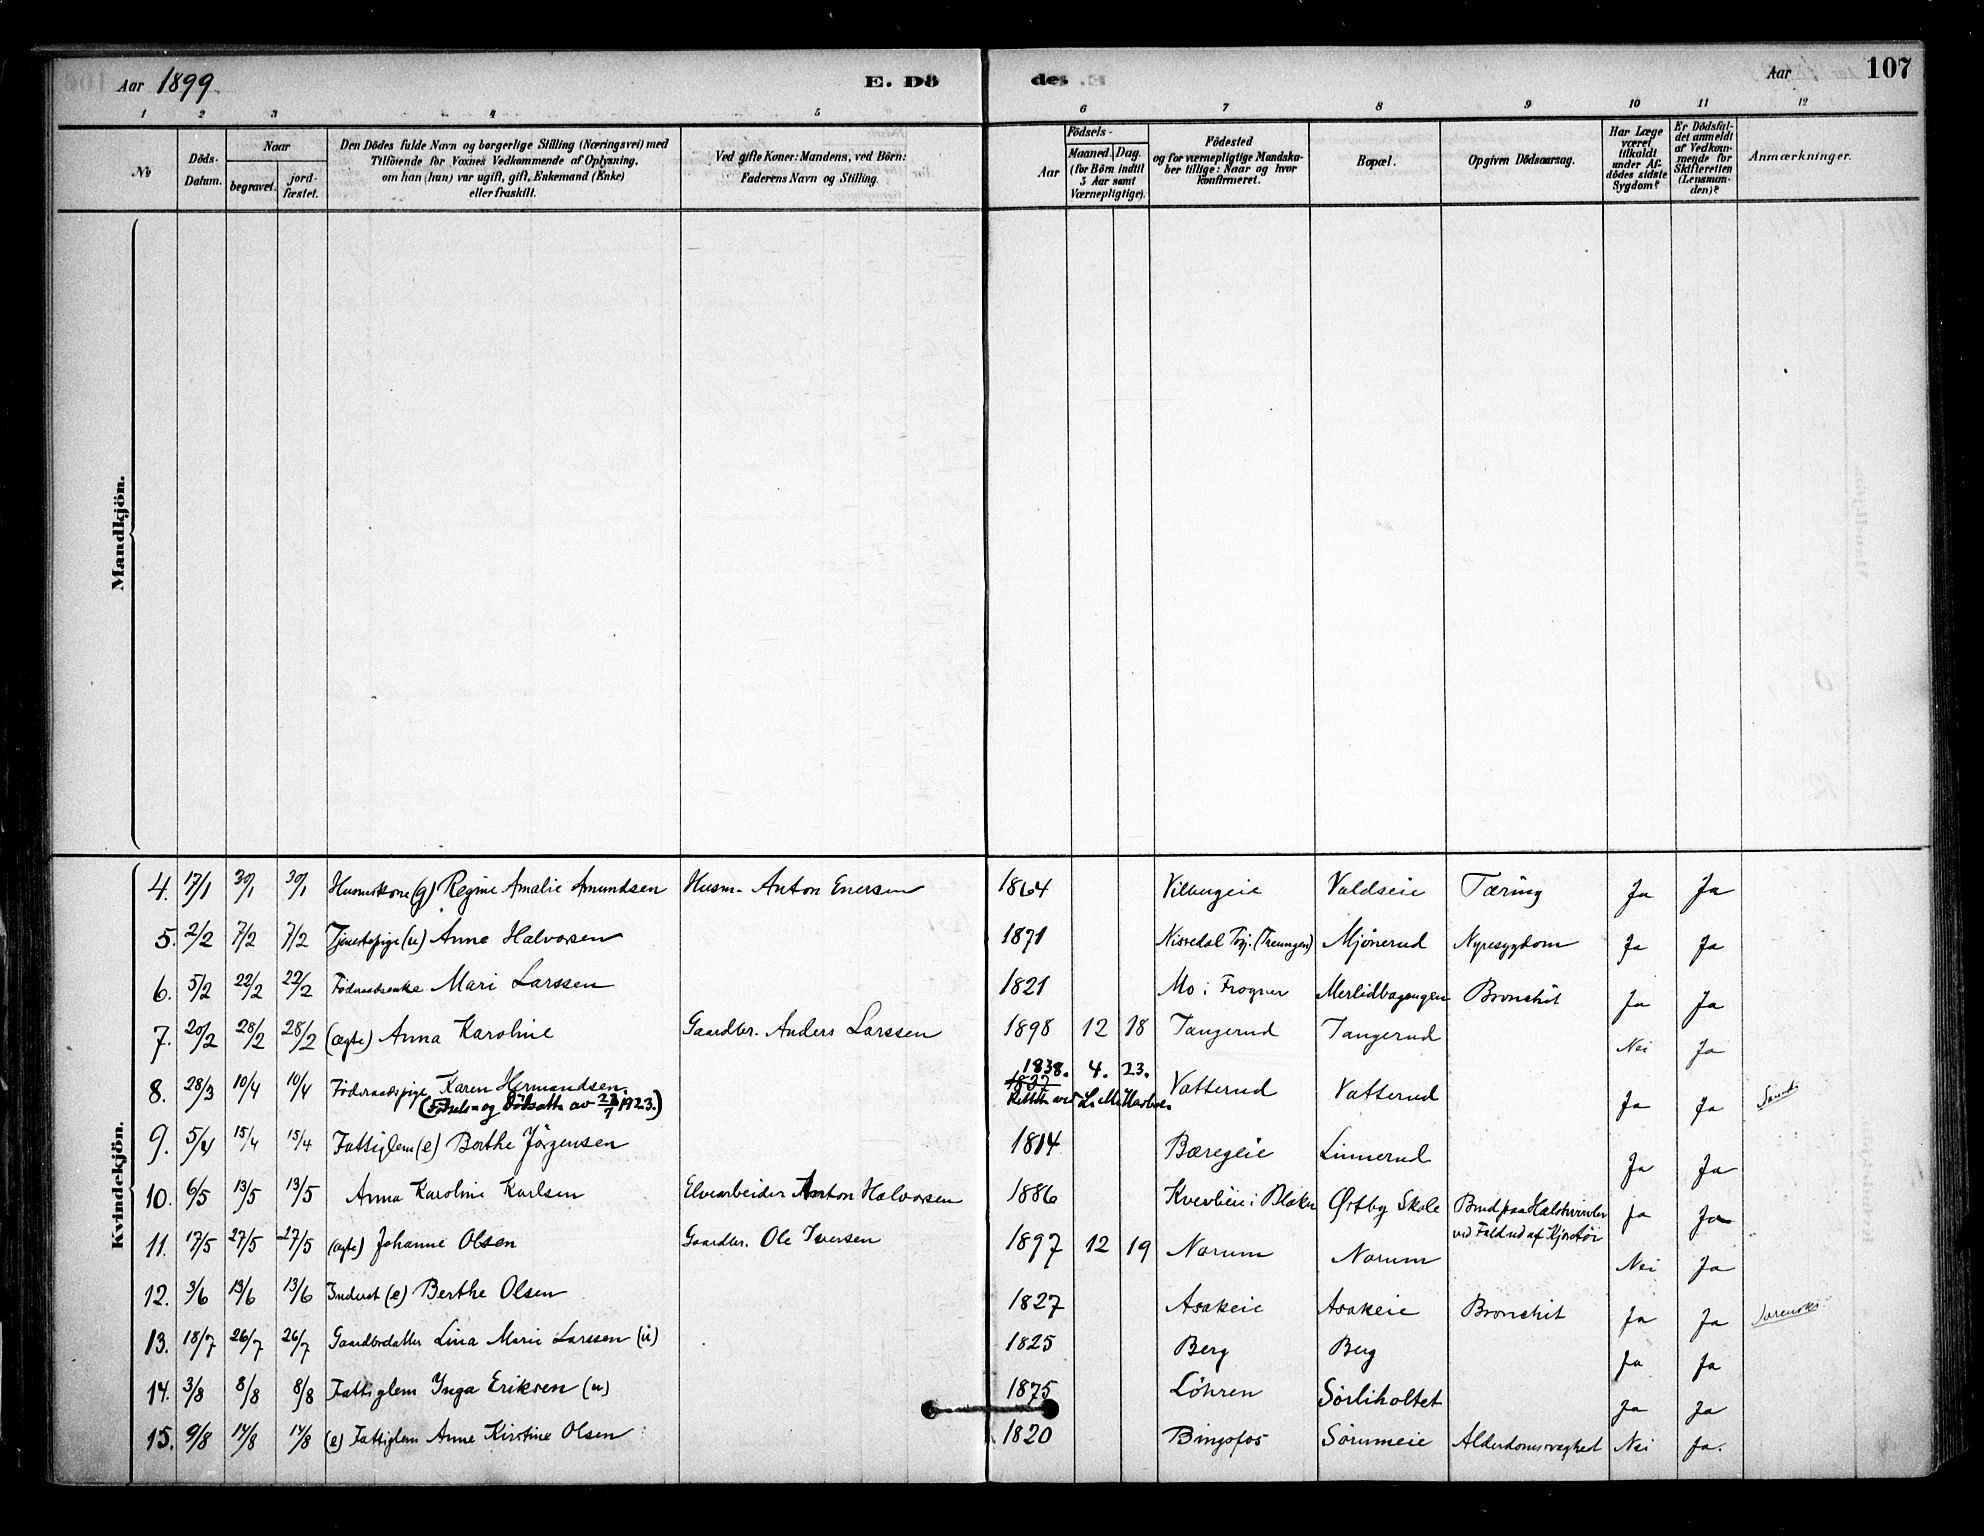 Aar 1899 E. Dö
des Aar 107
1 2 3 4 5 6 7 8 9 10 11 12
No
Döds-Datum.
Naar
begravet. jordfæstet.
Den Dödes fulde Navn og borgerlige Stilling (Næringsvei) med
Tilföiende for Voxnes Vedkommende af Oplysning,
om han (hun) var ugift, gift, Enkemand (Enke)
eller fraskilt.
Ved gifte Koner: Mandens, ved Börn:
Faderens Navn og Stilling.
Födsels-
Aar
Maaned. Dag.
(for Börn indtil
5 Aar samt
Værnepligtige).
Födested
og for værnepligtige Mandska-
ber tillige: Naar og hvor
konfirmeret.
Bopæl.
Opgiven Dödsaarsag.
Har Læge
været
tilkaldt
under Af-
dödes sidste
Sygdom?
Er Dödsfal-
det anmeldt
af Vedkom-
mende for
Skifteretten
(Lensman-
den)?
Anmærkninger.
Mandkjön.
Kvindekjön.
4. 17/1 30/1 30/1 Husmskone (g) Regine Amalie Amundsen Husm. Anton Enersen 1864 Vilbergeie Valdseie Tæring Ja Ja
5. 2/2 7/2 7/2 Tjenestepige (u) Anne Halvorsen 1871 Nissedal Prgj. (Treungen) Mjönerud Nyresygdom Ja Ja
6. 5/2 22/2 22/2 Föderaadsenke Mari Larssen 1821 Mo i Frogner Merlidbagaugen Bronchit Ja Ja
7. 20/2 28/2 28/2 (ægte) Anna Karoline Gaardbr. Anders Larssen 1898 12 18 Tangerud Tangerud Nei Ja
8. 28/3 10/4 10/4 Föderaadspige Karen Hermandsen 1838. 4. 23. Vatterud Vatterud Ja Ja
(Födsels- og Dödsatt. av 23/1 1923.) 1837 Rettet ved
9. 5/4 15/4 15/4 Fattiglem (e) Berthe Jörgensen 1814 Bæregeie Linnerud Ja Ja
10. 6/5 13/5 13/5 Anna Karoline Karlsen Elvearbeider Anton Halvorsen 1886 Kvevlieie i Blaker Østby Skole Brud paa Halshvirvler Ja Ja
ved Fald ud af Kjöretöi
11. 17/5 27/5 27/5 (ægte) Johanne Olsen Gaardbr. Ole Iversen 1897 12 19 Norum Norum Nei Ja
12. 3/6 13/6 13/6 Inderst (e) Berthe Olsen 1827 Asakeie Asakeie Bronchit Ja Ja
13. 18/7 26/7 26/7 Gaardbrdatter Lina Marie Larssen (u) 1825 Berg Berg Ja Ja
14. 3/8 8/8 8/8 Fattiglem Inga Eriksen (u) 1875 Löhren Sörliholtet Ja Ja
15. 9/8 14/8 14/8 (e) Fattiglem Anne Kirstine Olsen 1820 Bingsfos Sörumeie Alderdomssvaghed Nei Ja.